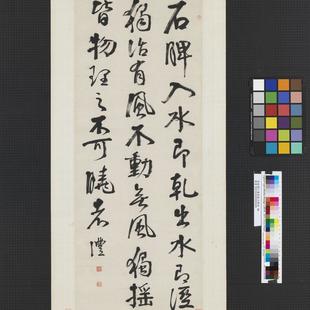 石脾入水即乾出水即濕
獨活有風不動無風獨搖
皆物理之不可曉者澧